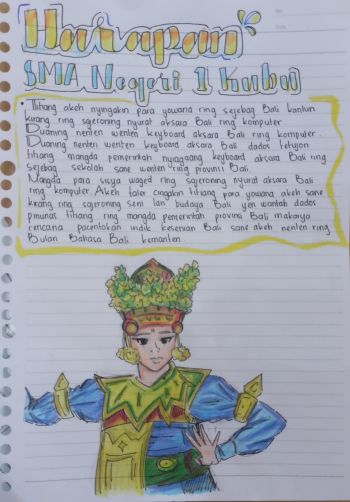 Harapan
SMA Negeri 1 Kubu
• TiTiang akeh nyingakin para yowana ring sejebag Bali kantun
kirang ring sajeroning nyurat aksara Bali ring komputer.
Duaning nenten wenten keyboard aksara Bali ring komputer.
Duaning nenten wenten keyboard aksara Bali dados letujon
titiang mangda pemerintah nyiagaang keyboard aksara Bali ring
sejebag sekolah sane wenten ring provinsi Bali.
Mangda para sisya waged ring sajeroning nyurat aksara Bali
ring komputer. Akeh taler cingakin titiang para yowana akeh sane
kirang ring sajeroning seni lan budaya Bali yen wantah dados
pinunas titiang ring mangda pemerintah provinsi Bali makarya
rencana pacentokan indik kesenian Bali sane akeh nenten ring
Bulan Bahasa Bali kemanten.